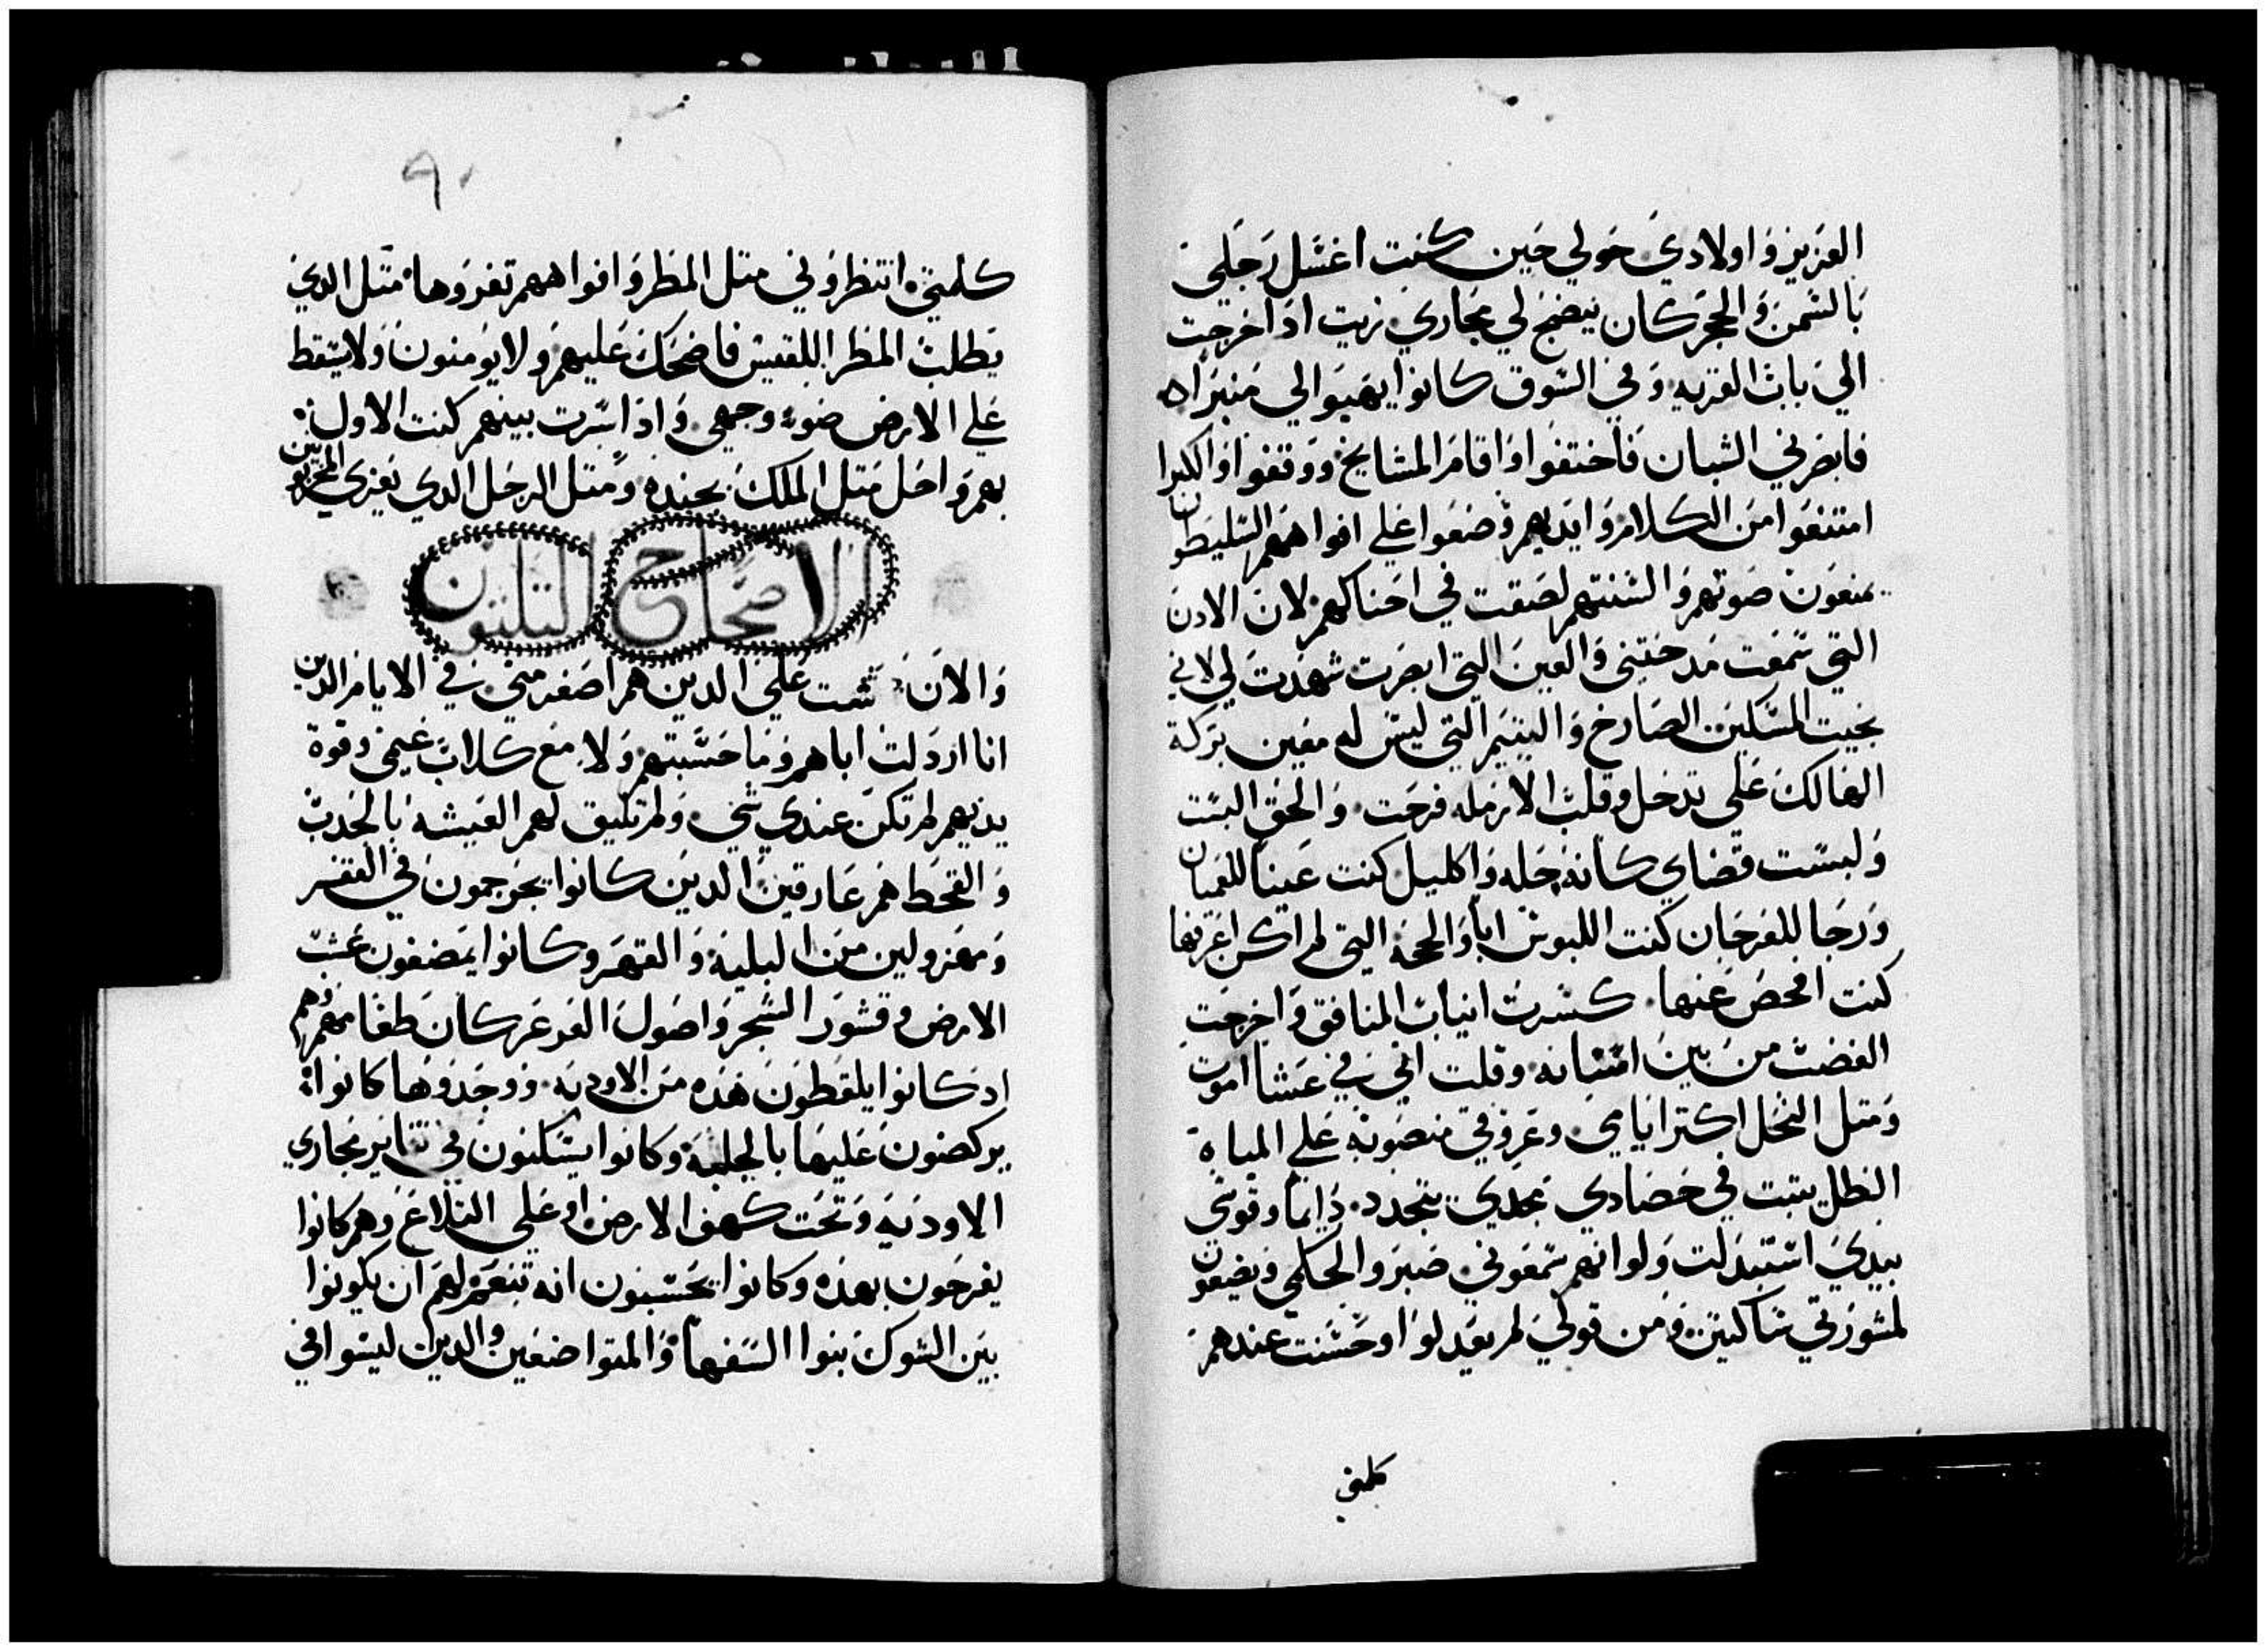 العزيز واولادي حولي حين كنت اغسل رجلي
بالسمن والحجر كان ينضج لي مجاري زيت اذا خرجت
الي باب القريه وفي السوق كانوا يهيوا لي منبراه
فابصرني الشبان فاختفوا واقامر المشايخ ووقفوا والكبرا
امتنعوا من الكلام وايديهم وضعوا علي افواههم السليطون
يمنعون صوتهم والسنتهم لصقت في احناكهم لان الادن
التي سمعت مدحتني والعين التي ابصرت شهدت لي لاني
نجيت المسكين الصارخ واليتيم التي ليس له معين بركة
الهالك علي تدخل وقلب الارمله فرحت والحق البست
ولبست قضاي كانه حله واكليل كنت عينا للعميان
ورجا للعرجان كنت اللبوس ابا والحجه التي لم اكن اعرفها
كنت افحص عنها كسرت انياب المنافق واخرجت
الغضب من بين اسنانه وقلت اني في عشا اموت
ومتل النخل اكتر ايامي وعروقي منصوبه علي المياه
الطل يتبت في حصادي مجدي يتجدد دايما وقوسي
بيدي استبدلت ولو انهم سمعوني صبروا لحكمي ويضعون
لمشورتي ساكتين ومن قولي لم يعدلوا وحسنت عندهم
كلمتي
٩٠
كلمتي انتظروني متل المطر وافواههم تغروها متل الدي
يطلب المطر اللقيس فاضحك عليهم ولا يومنون ولا يسقط
علي الارض ضوء وجهي واذا سرت بينهم كنت الاول
بهم واحل متل الملك بجنده ومتل الرجل الدي يعزي المحزونين
الاصحاح التلتون
والان شمت علي الدين هم اصغر مني في الايام الدين
انا اردلت اباهم وما حسبتهم ولا مع كلاب غنمي وقوة
يديهم لم تكن عندي شي ولم تليق لهم العيشه بالجدب
والقحط هم عارقين الدين كانوا يجوجمون في القفر
ومهزولين من البليه والقهر وكانوا يمضغون عشب
الارض وقشور الشجر واصول العرعر كان طعامهم وهم
اد كانوا يلقطون هذه من الاوديه ووجدوها كانوا
يركضون عليها بالجلبه وكانوا يسكنون في تنانير مجاري
الاوديه وتحت كهف الارض او علي التلاع وهم كانوا
يفرحون بهذه وكانوا يحسبون انه تنعم لهم ان يكونوا
بين الشوك بنوا السفها والمتواضعين والدين ليسوا في